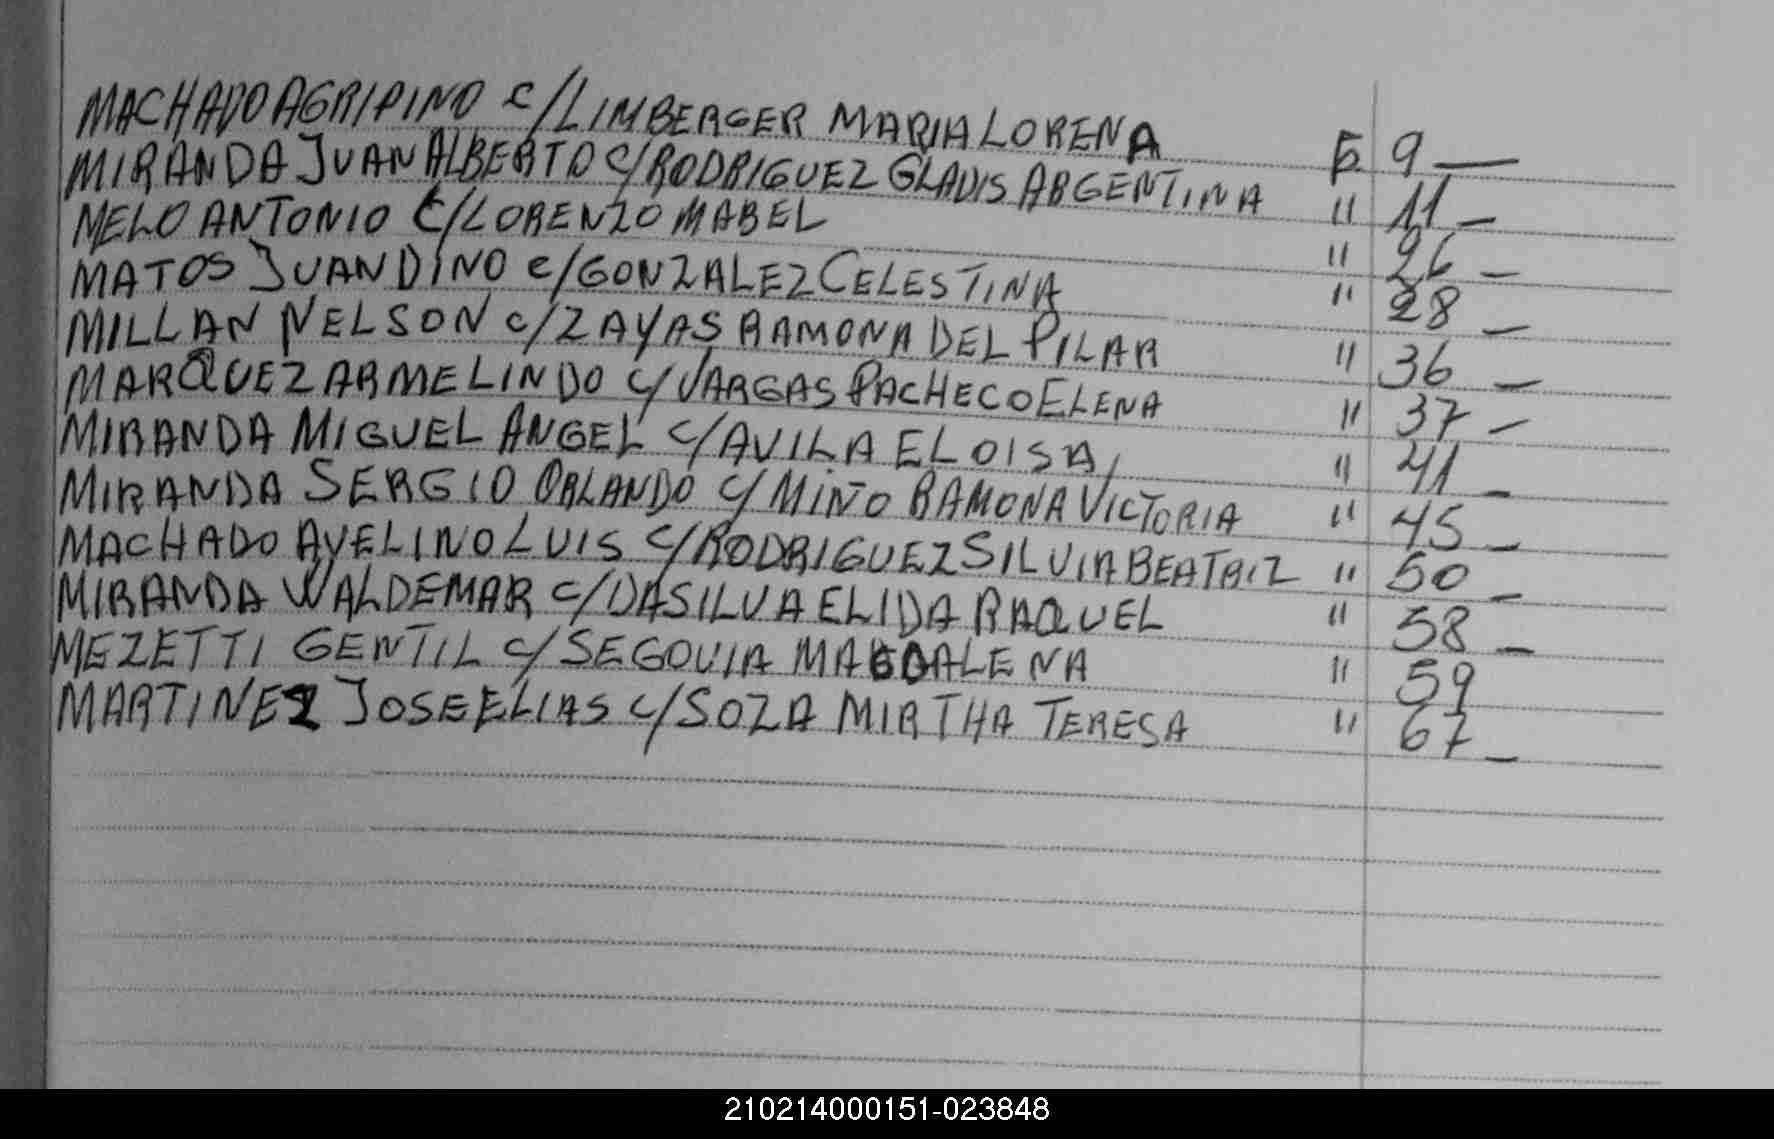 MACHADO AGRIPINO c/LIMBERGER MARIA LORENA F. 9 —
MIRANDA JUAN ALBERTO c/RODRIGUEZ GLADIS ARGENTINA " 11 —
MELO ANTONIO c/LORENZO MABEL " 26 —
MATOS JUAN DINO c/GONZALEZ CELESTINA " 28 —
MILLAN NELSON c/ZAYAS RAMONA DEL PILAR " 36 —
MARQUEZ ARMELINDO c/VARGAS PACHECO ELENA " 37 —
MIRANDA MIGUEL ANGEL c/AVILA ELOISA, " 41 —
MIRANDA SERGIO ORLANDO c/MIÑO RAMONA VICTORIA " 45 —
MACHADO AVELINO LUIS c/RODRIGUEZ SILVIA BEATRIZ " 50 —
MIRANDA WALDEMAR c/DASILVA ELIDA RAQUEL " 58 —
MEZETTI GENTIL c/SEGOVIA MAGDALENA " 59
MARTINEZ JOSE ELIAS c/SOZA MIRTHA TERESA " 67 —
210214000151-023848